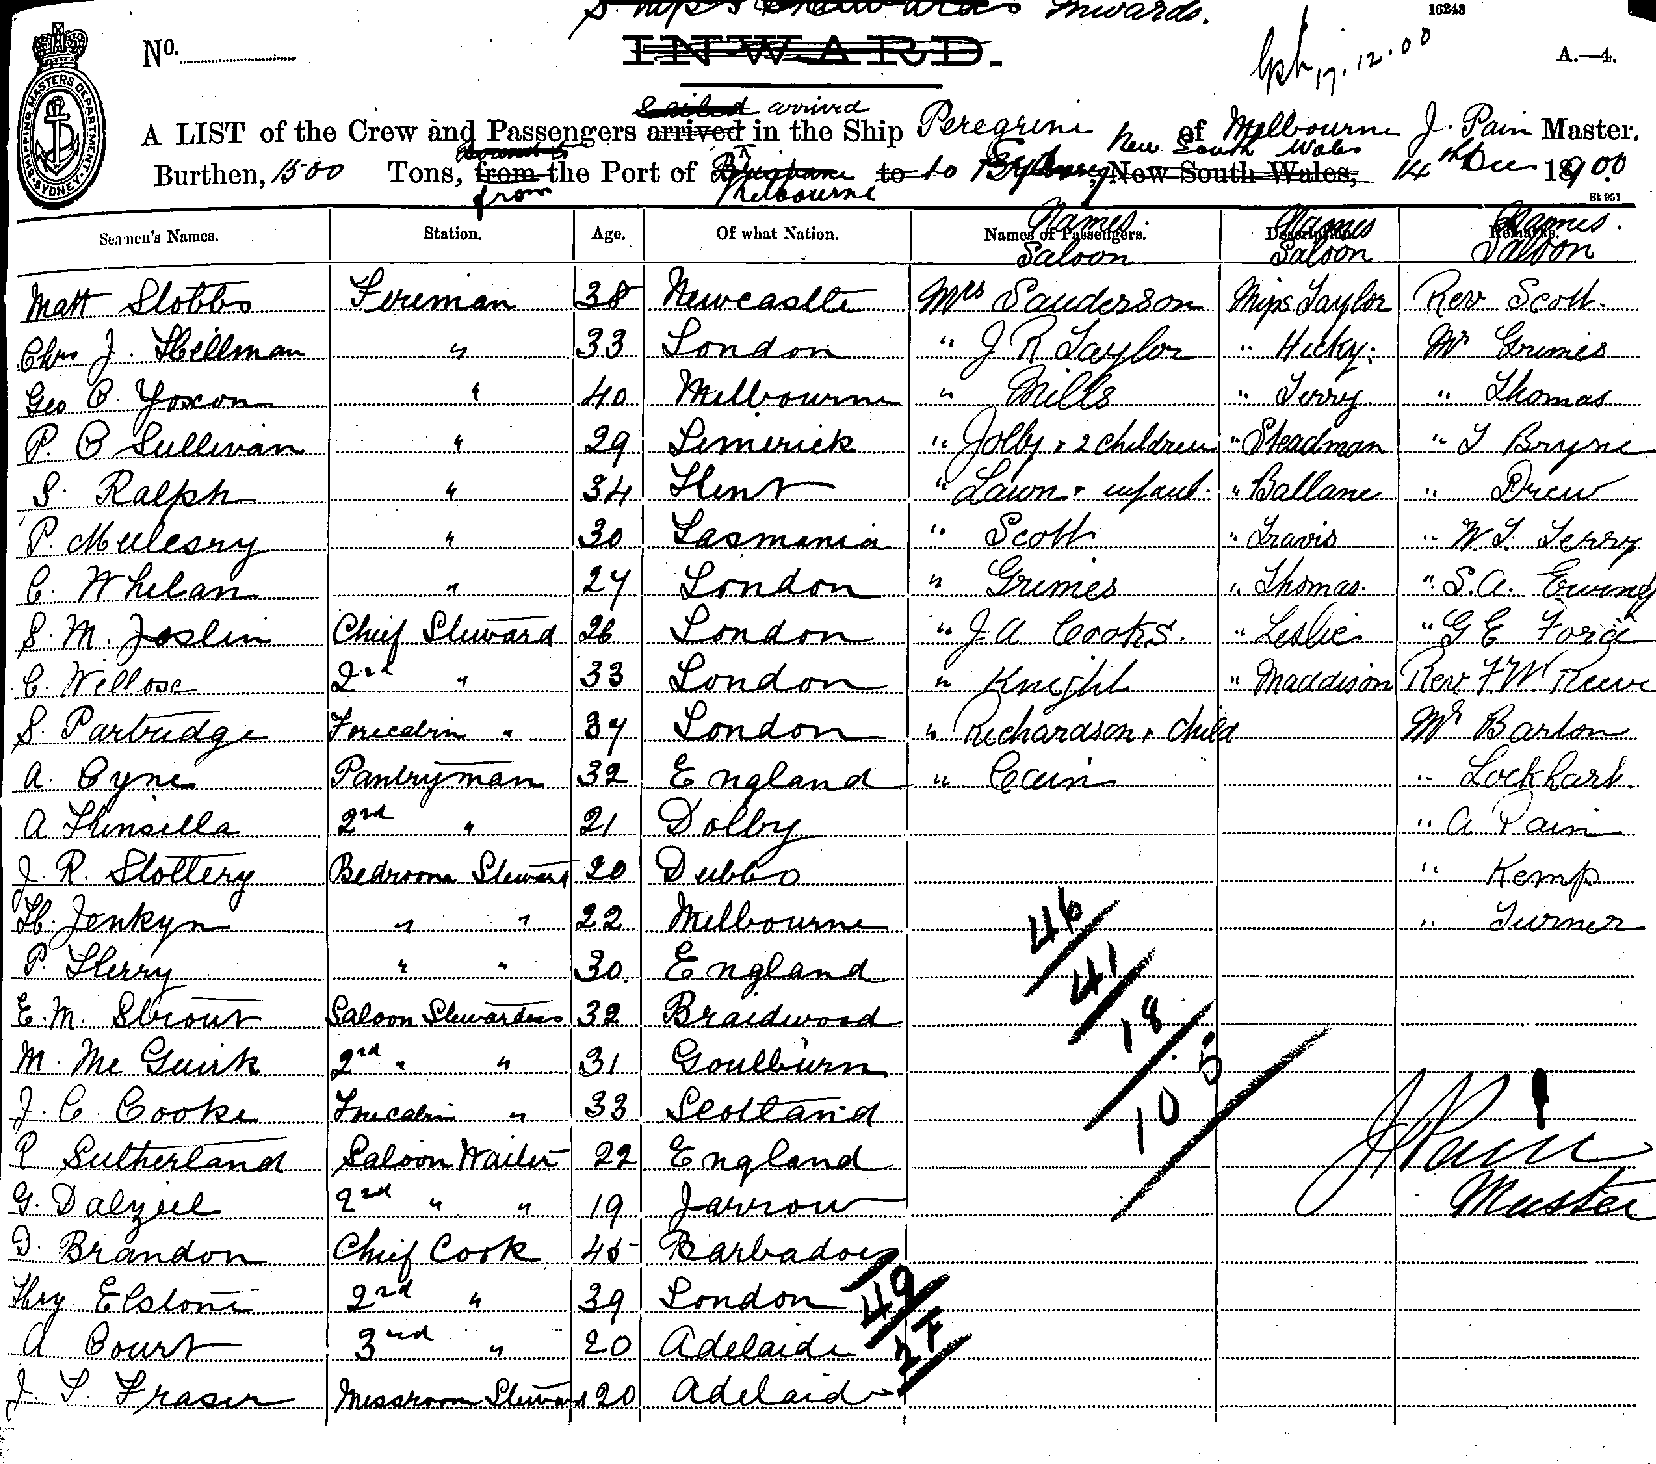 Inwards.
16243
No.
INWARD.
17.12.00
A.—4.
SHIPPING MASTERS DEPARTMENT SYDNEY
Sailed arrived
A LIST of the Crew and Passengers arrived in the Ship Peregrine of Melbourne J. Pain Master.
New South Wales
Burthen, 1500 Tons, from the Port of Brisbane to to Sydney New South Wales, 14th Dec 1900
from Melbourne
Seamen's Names. Station. Age. Of what Nation. Names of Passengers. Description. Remarks.
Names. Saloon Names Saloon Names. Saloon
Matt Stobbs Fireman 38 Newcastle Mrs Sanderson Miss Taylor Rev Scott.
Chas J. Hillman " 33 London " J R Taylor " Hicky. Mr Grimes
Geo B. Yoxon " 40 Melbourne " Mills " Terry " Thomas
P. O Sullivan " 29 Limerick " Jolby & 2 children " Steadman " T Bryne
S. Ralph " 34 Flint " Lawn & infant. " Ballane " Drew
P. " 30 Tasmania " Scott " Travis " W. T. Terry
C. Whelan " 27 London " Grimes " Thomas. " S. A.
S. M. Joslin Chief Steward 26 London " J. A Cooks. " Leslie " G E Ford
C. Willose 2nd " 33 London " Knight " Maddison Rev F W Reeve
S. Partridge Forecabin " 37 London " Richardson & child Mr Barton
A. Cyne Pantryman 32 England " Cain " Lockhart.
A Hinsilla 2nd " 21 Dolby " A Pain
J. R. Slottery Bedroom Steward 20 Dubbo " Kemp
H. Jenkyn " " 22 Melbourne " Turner
P. Sherry " " 30 England
E. M. Strout Saloon Stewardess 32 Braidwood
M. Mc Guirk 2nd " " 31 Goulburn
J. C. Cooke Forecabin " 33 Scotland
P Sutherland Saloon Waiter 22 England
G. Dalziel 2nd " " 19 Jarrow
D. Brandon Chief Cook 45 Barbadoes
Hry Elstone 2nd " 39 London
A Court 3rd " 20 Adelaide
J. T. Fraser Messroom Steward 20 Adelaide
46
41
18
10.5
49
27
J Pain
Master